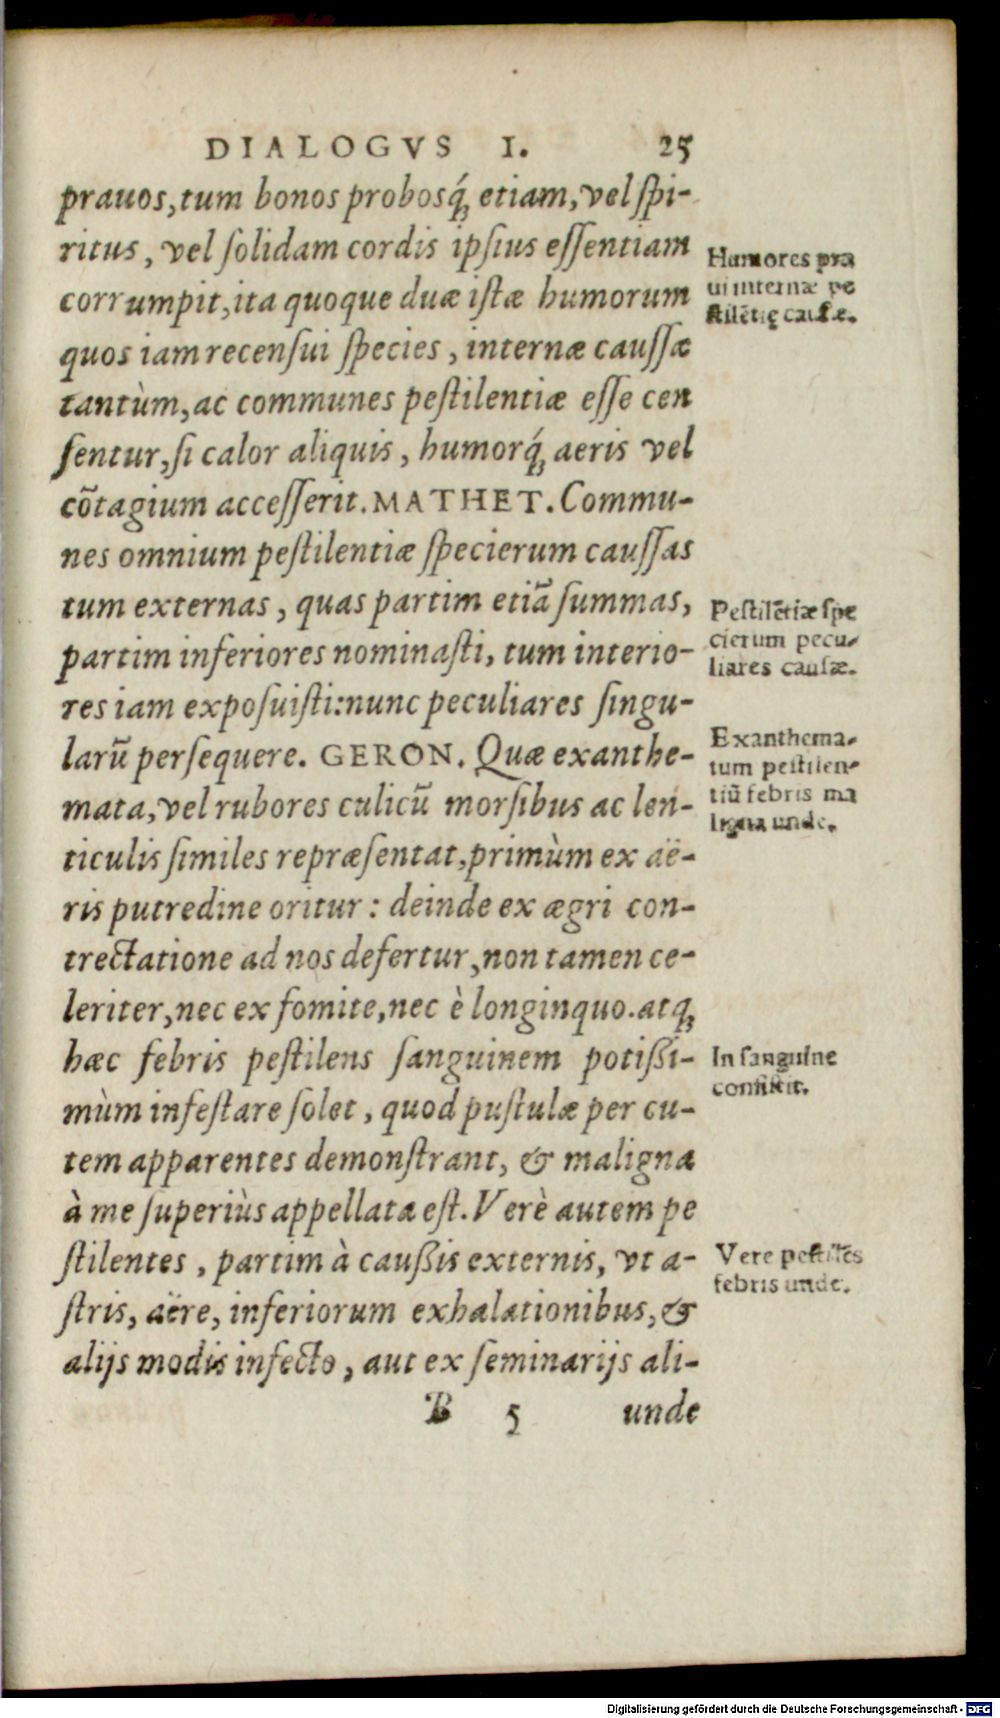 DIALOGVS I. 25
prauos, tum bonos probosq́; etiam, vel spi-
ritus, vel solidam cordis ipsius essentiam
corrumpit, ita quoque duæ istæ humorum
quos iam recensui species, internæ caussæ
tantùm, ac communes pestilentiæ esse cen
sentur, si calor aliquis, humorq́; aeris vel
cõtagium accesserit. MATHET. Commu-
nes omnium pestilentiæ specierum caussas
tum externas, quas partim etiã summas,
partim inferiores nominasti, tum interio-
res iam exposuisti: nunc peculiares singu-
larũ persequere. GERON. Quæ exanthe-
mata, vel rubores culicũ morsibus ac len-
ticulis similes repræsentat, primùm ex aë-
ris putredine oritur: deinde ex ægri con-
trectatione ad nos defertur, non tamen ce-
leriter, nec ex fomite, nec è longinquo. atq;
hæc febris pestilens sanguinem potißi-
mùm infestare solet, quod pustulæ per cu-
tem apparentes demonstrant, & maligna
à me superiùs appellata est. Verè autem pe
stilentes, partim à caußis externis, vt a-
stris, aëre, inferiorum exhalationibus, &
alijs modis infecto, aut ex seminarijs ali-
B 5 unde
Humores pra
ui internæ pe
stilẽtię causæ.
Pestilẽtiæ spe
cierum pecu-
liares causæ.
Exanthema-
tum pestilen-
tiũ febris ma
ligna unde.
In sanguine
consistit.
Vere pestilẽs
febris unde.
Digitalisierung gefördert durch die Deutsche Forschungsgemeinschaft - DFG